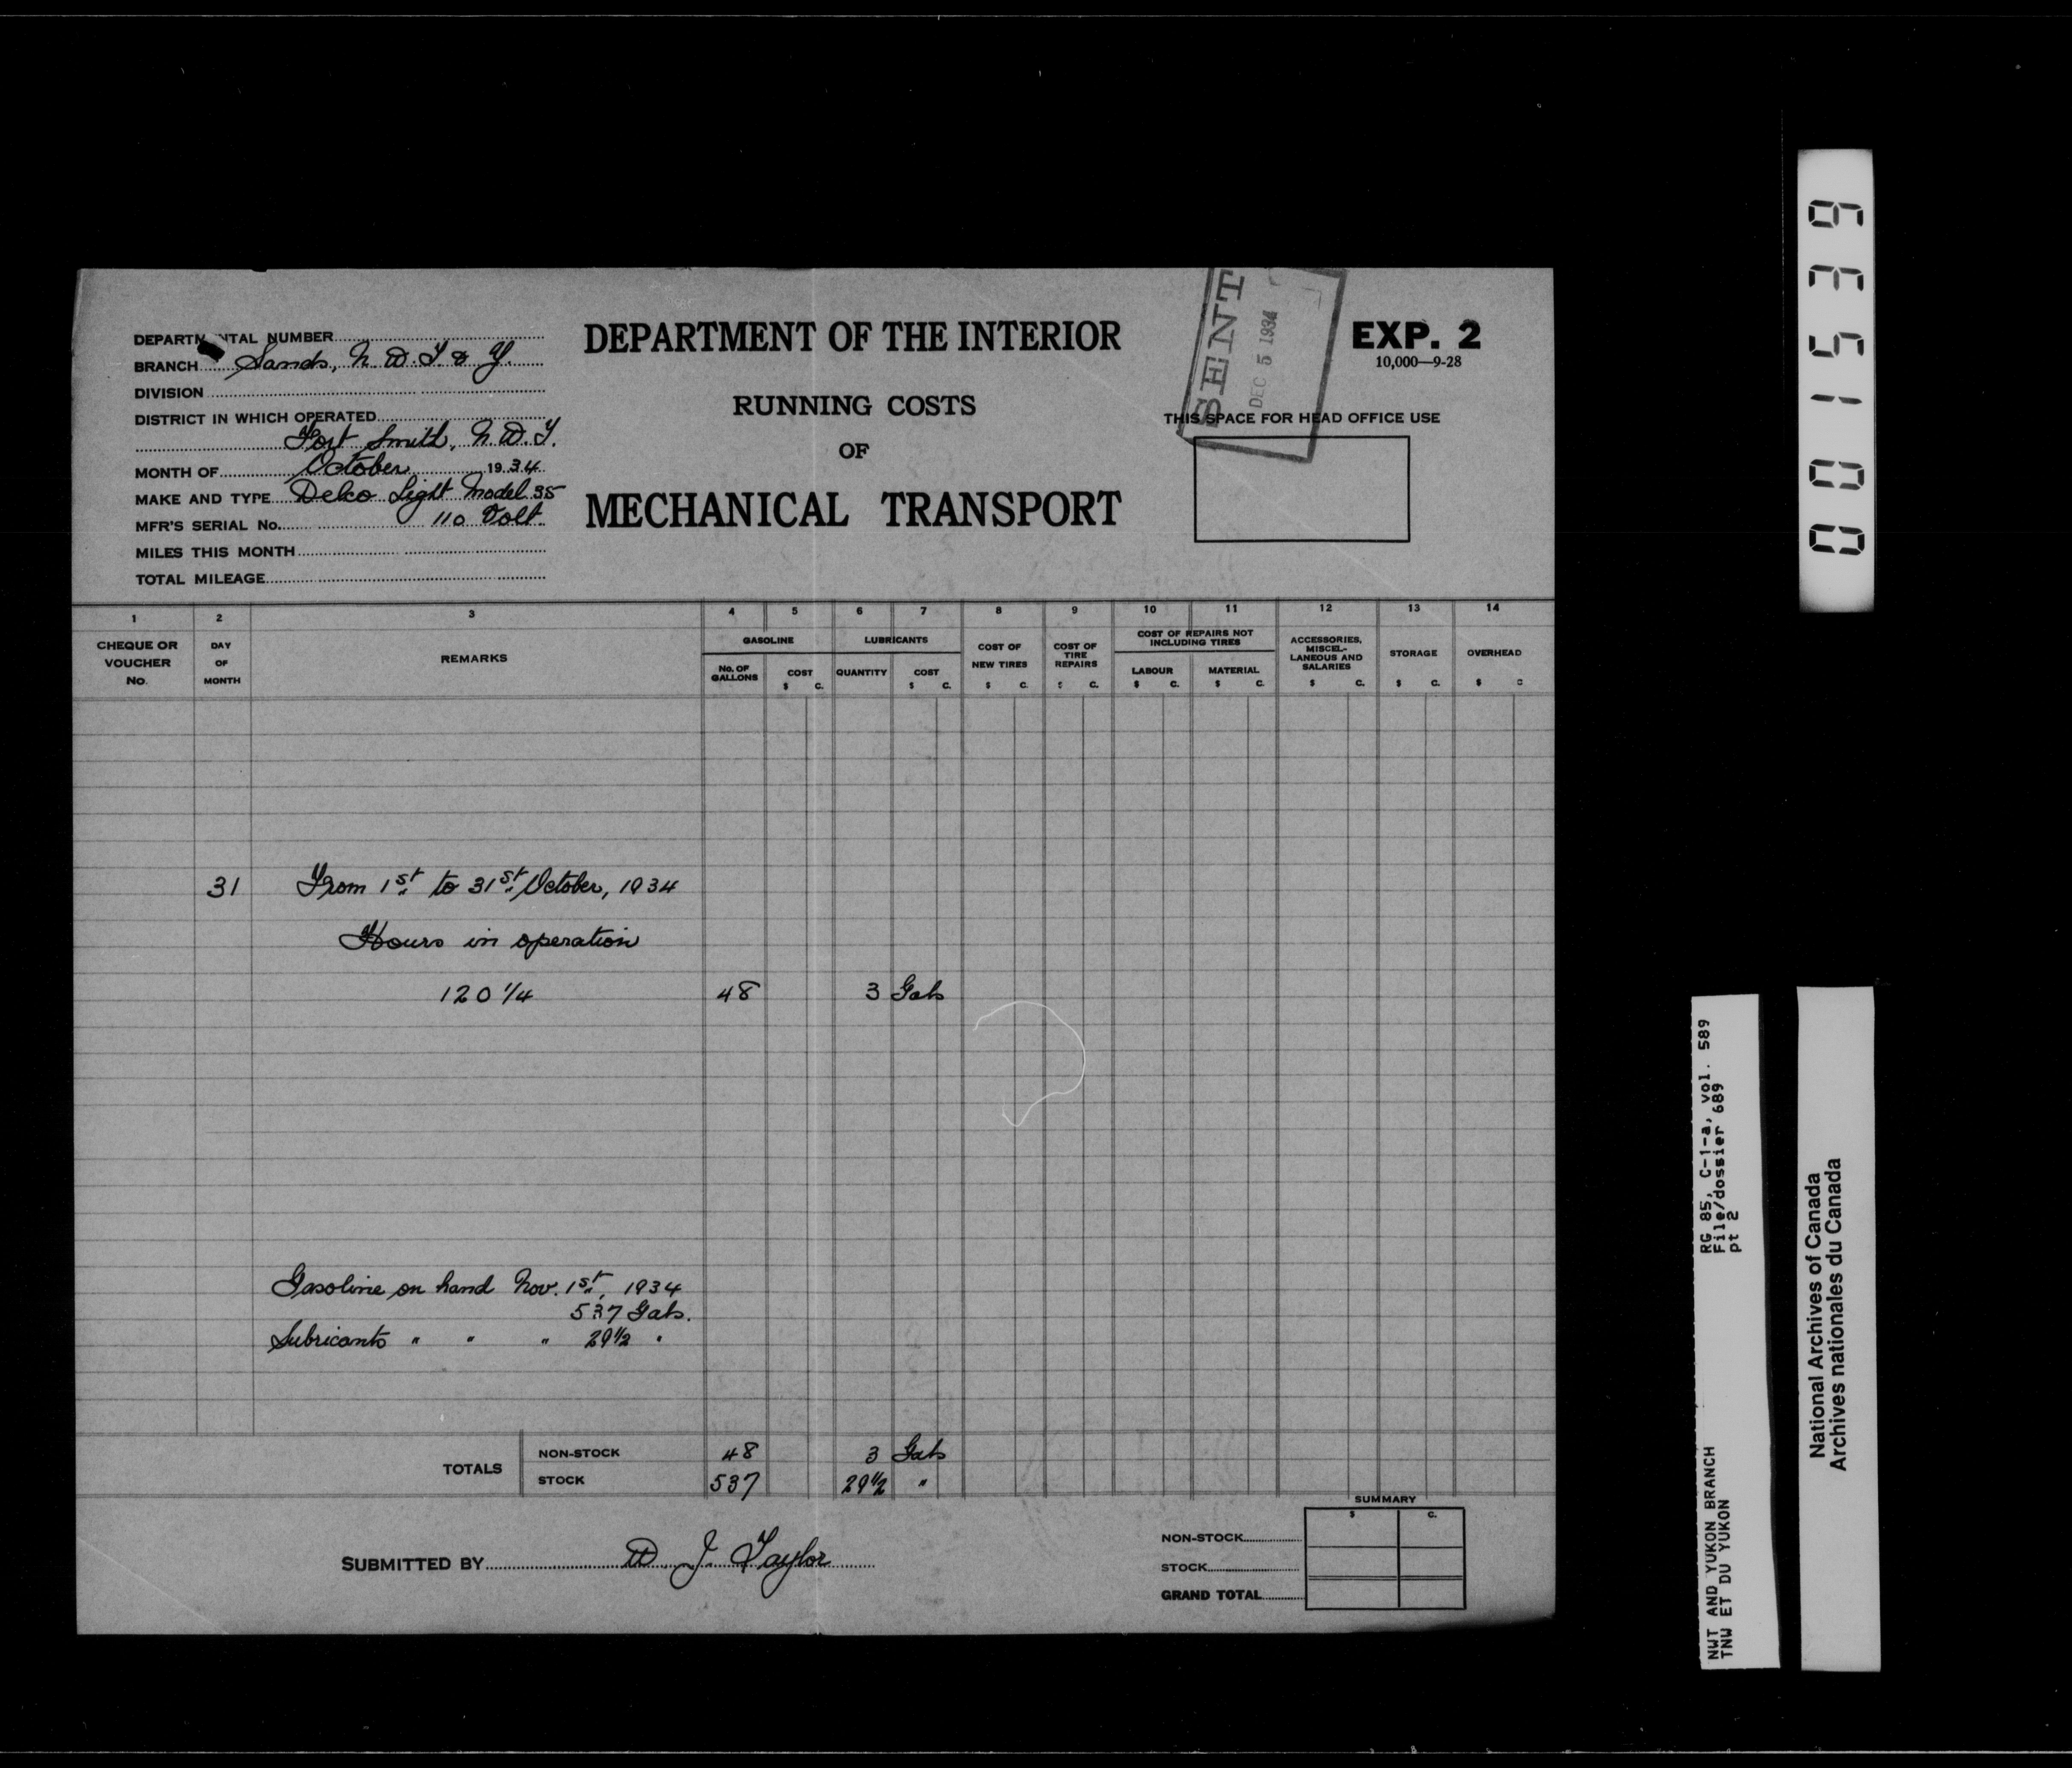 DEPARTMENTAL NUMBER
BRANCH Lands, N.W.T. & Y.
DIVISION
DISTRICT IN WHICH OPERATED
Fort Smith, N.W.T.
MONTH OF October 1934
MAKE AND TYPE Delco Light Model 35
MFR'S SERIAL No. 110 Volt.
MILES THIS MONTH
TOTAL MILEAGE
DEPARTMENT OF THE INTERIOR
RUNNING COSTS
OF
MECHANICAL TRANSPORT
SENT
DEC 5 1934
EXP. 2
10,000—9-28
THIS SPACE FOR HEAD OFFICE USE
1 2 3 4 5 6 7 8 9 10 11 12 13 14
CHEQUE OR VOUCHER No.
DAY OF MONTH
REMARKS
GASOLINE
No. OF GALLONS
COST $ C.
LUBRICANTS
QUANTITY
COST $ C.
COST OF NEW TIRES $ C.
COST OF TIRE REPAIRS $ C.
COST OF REPAIRS NOT INCLUDING TIRES
LABOUR $ C.
MATERIAL $ C.
ACCESSORIES, MISCEL-
LANEOUS AND SALARIES $ C.
STORAGE $ C.
OVERHEAD $ C
31 From 1st to 31st October, 1934
Hours in operation
120 1/4 48 3 Gals
Gasoline on hand Nov. 1st, 1934
537 Gals.
Lubricants " " " 29 1/2 "
TOTALS
NON-STOCK 48 3 Gals
STOCK 537 29 1/2 "
SUBMITTED BY D J. Taylor
SUMMARY
$ C.
NON-STOCK
STOCK
GRAND TOTAL
001539
RG 85, C-1-a, vol. 589
File/dossier 689
pt 2
NWT AND YUKON BRANCH
TNW ET DU YUKON
National Archives of Canada
Archives nationales du Canada